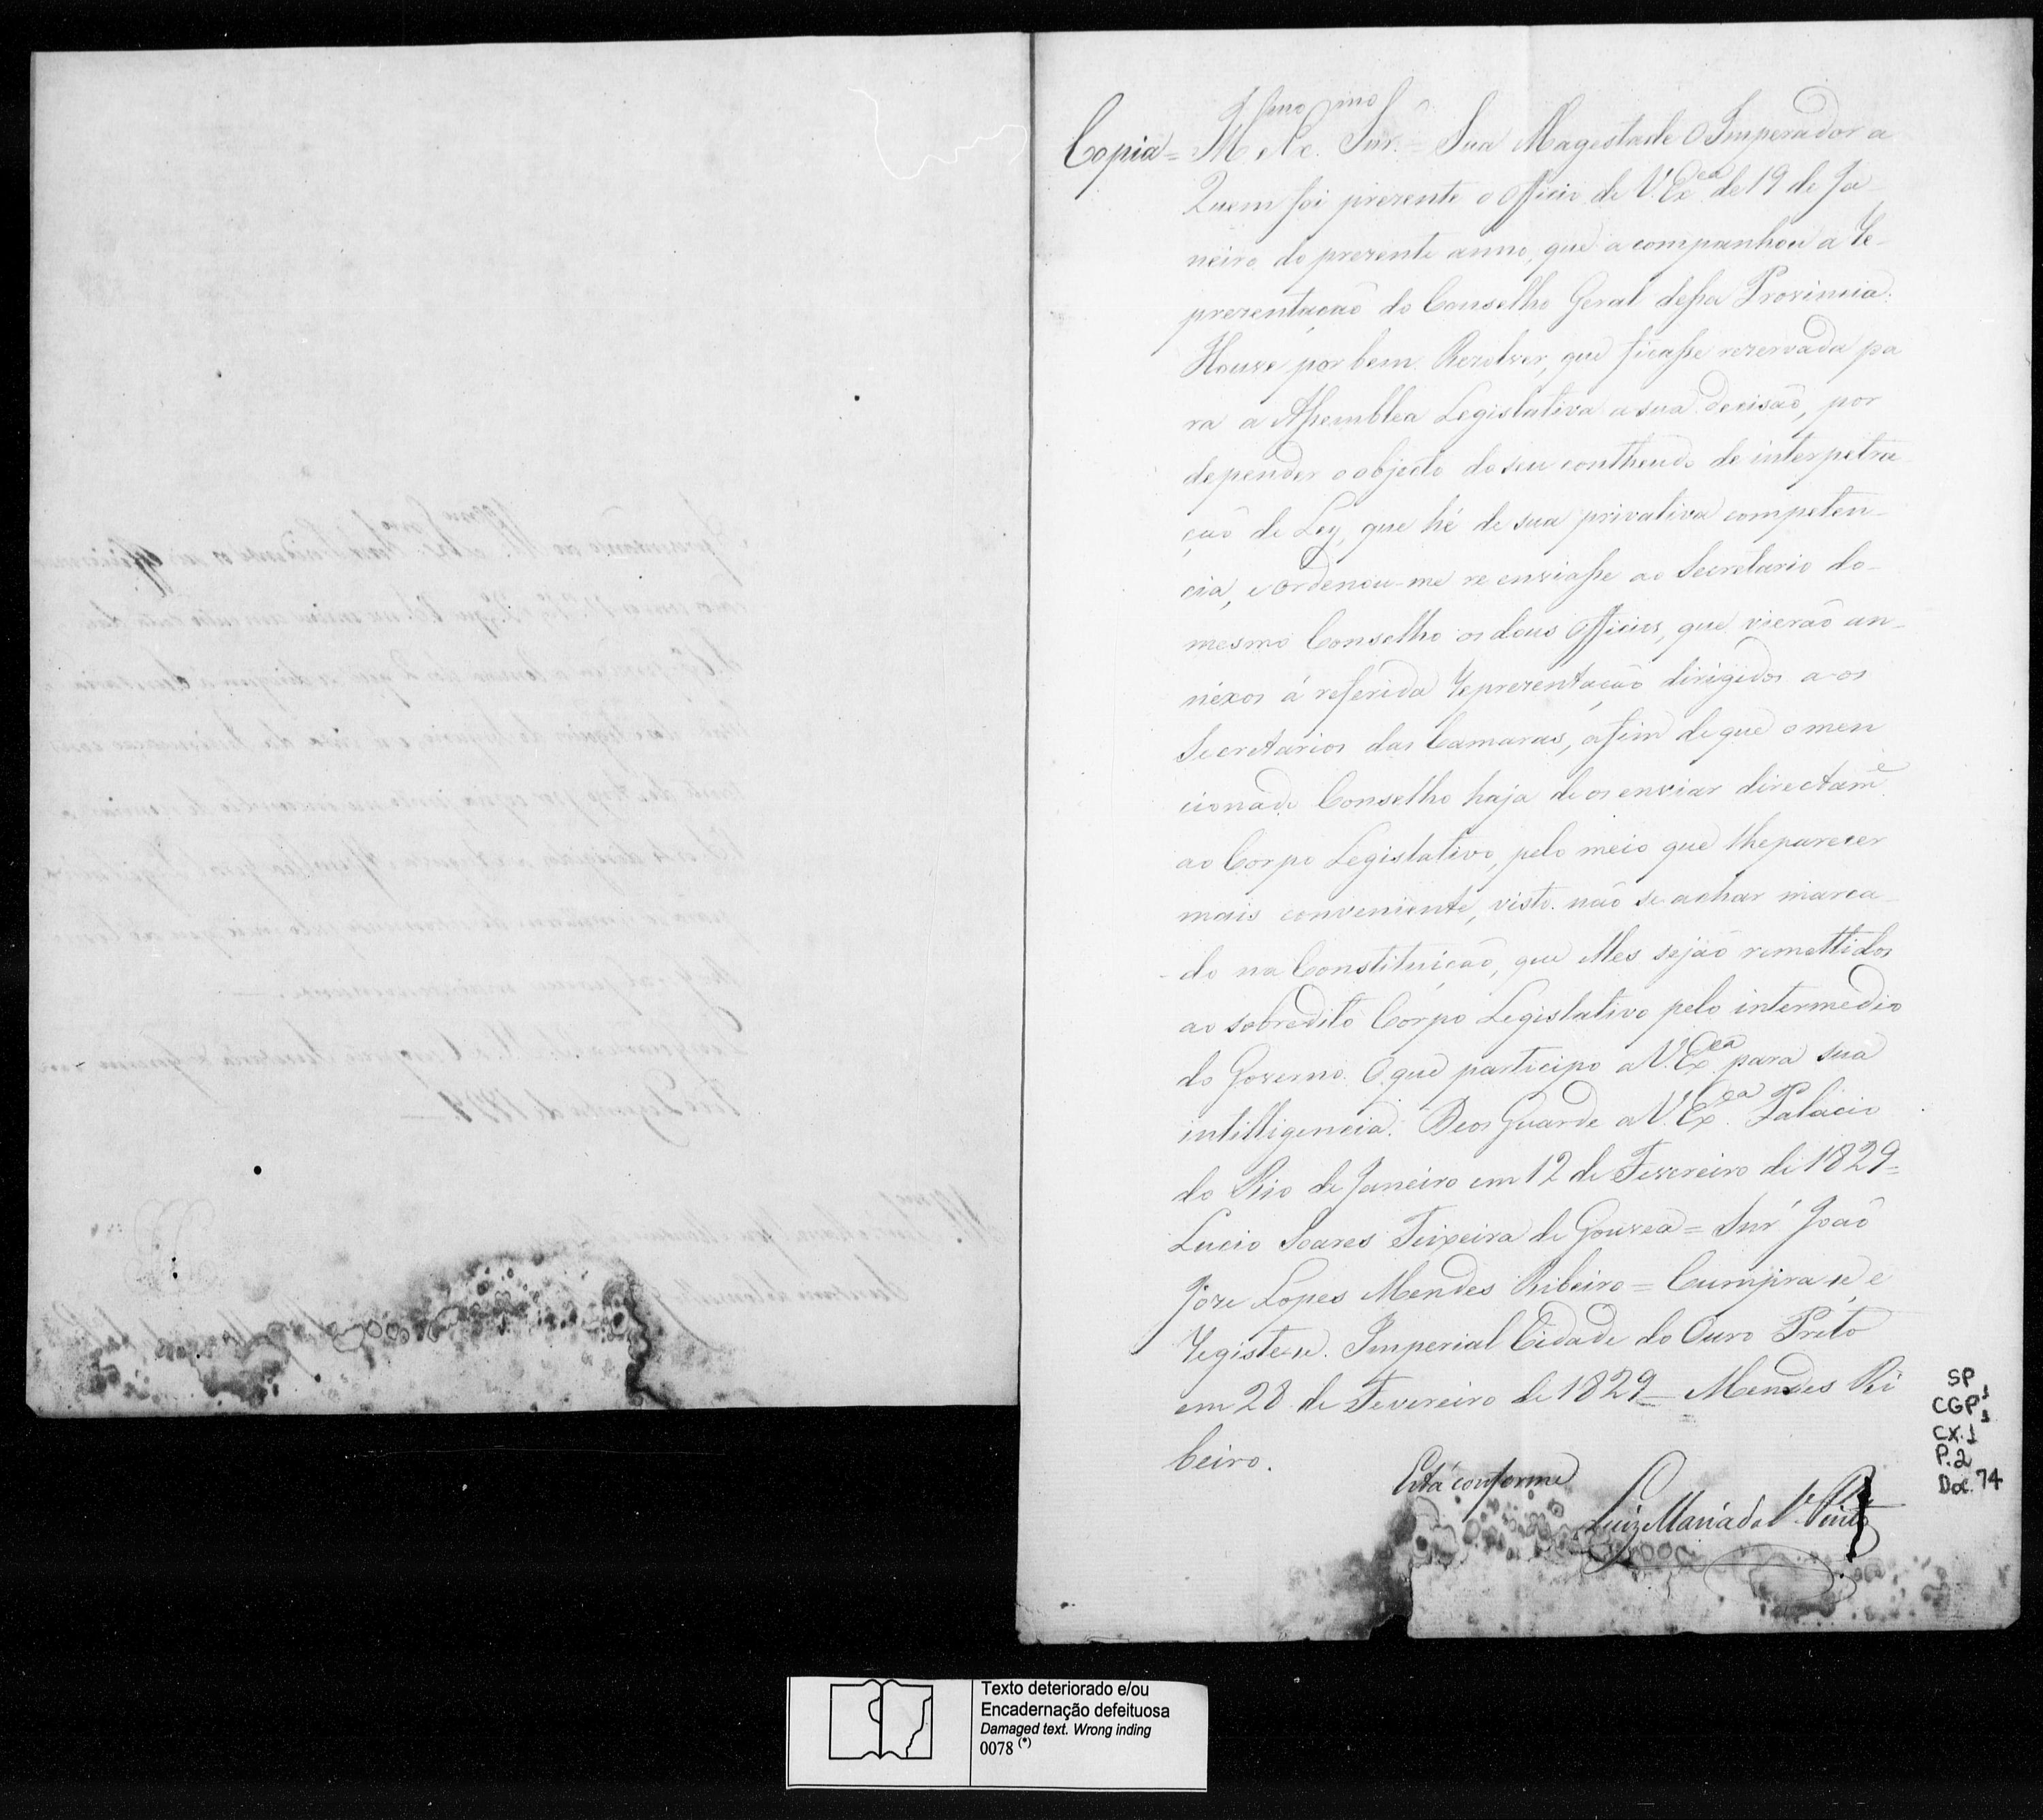 Copia = Illmo e Exmo Snr. = Sua Magestade O Imperador a
Quem foi prezente o Officio de V. Exca de 19 de Ja-
neiro do prezente anno, que acompanhou a Re-
prezentação do Conselho Geral dessa Provincia:
Houve por bem Rezolver, que ficasse rezervada pa
ra a Assemblea Legislativa a sua decisaõ, por
depender o objecto do seu contheudo de interpetra
ção de Ley, que hé de sua privativa competen-
cia, e ordenou-me re enviasse ao Secretario do
mesmo Conselho os dous Officios, que vieraõ an-
nexos á referida Reprezentação dirigidos a os
Secretarios das Camaras, afim de que o men
cionado Conselho haja de os enviar directame
ao Corpo Legislativo, pelo meio que lhe parecer
mais conveniente, visto não se achar marca-
do na Constituição, que elles sejaõ remettidos
ao sobredito Corpo Legislativo pelo intermedio
do Governo. O que participo a V. Exca para sua
intilligencia. Deos Guarde a V. Exca. Palacio
do Rio de Janeiro em 12 de Fevereiro de 1829 =
Lucio Soares Teixeira de Gouvea = Snr' João
Joze Lopes Mendes Ribeiro = Cumpra se, e
Registe se. Imperial Cidade do Ouro Preto
em 28 de Fevereiro de 1829 = Mendes Ri
beiro.
Está conforme
Luiz Maria da Sa. Pinto
SP
CGP1
CX.1
P.2
Doc. 74
Texto deteriorado e/ou
Encadernação defeituosa
Damaged text. Wrong inding
0078 (*)